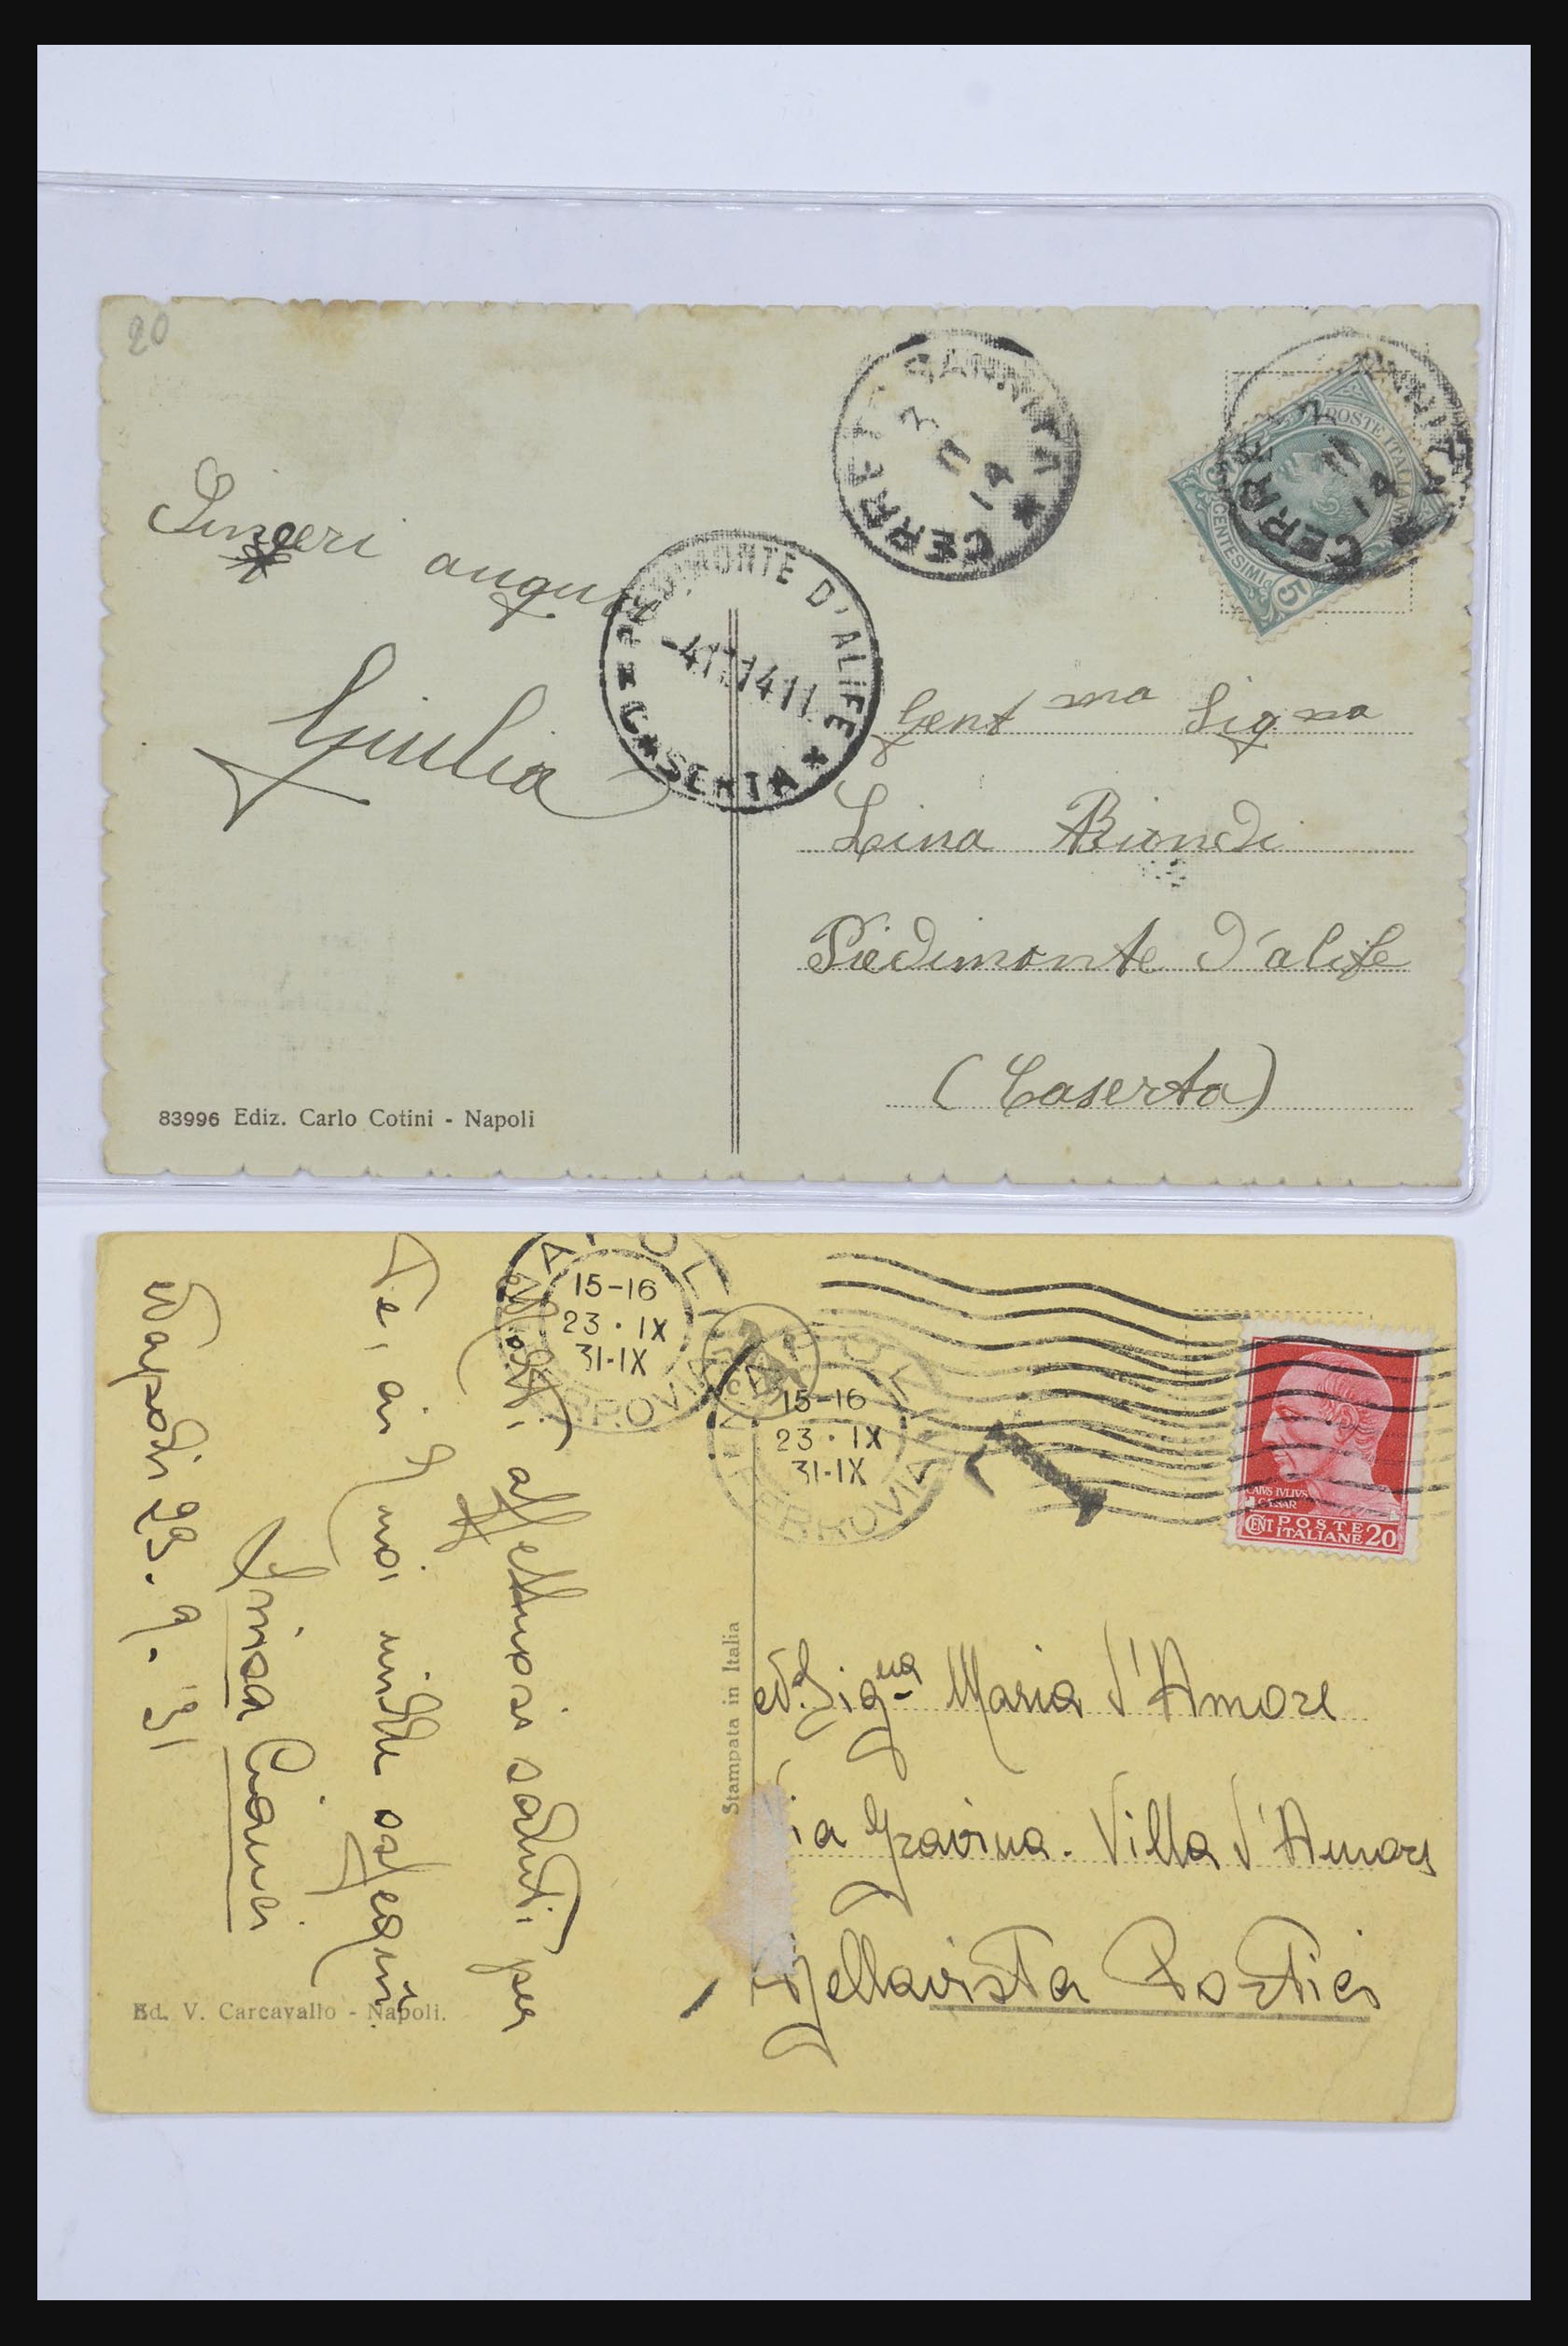 20
CERRETO SANNITA
3
11
14
POSTE ITALIANE
CENTESIMI 5
Sinceri auguri
PIEDIMONTE D'ALIFE
-4.11.14 11
* CASERTA *
Giulia
Gent ma Sig na
Lina Biondi
Piedimonte d'alife
(Caserta)
83996 Ediz. Carlo Cotini - Napoli
NAPOLI
15-16
23 · IX
31-IX
FERROVIA
NAPOLI
15-16
23 · IX
31-IX
FERROVIA
T
CAIVS IVLIVS
CAESAR
CENT POSTE
ITALIANE 20
Molti affettuosi saluti per
Te, ai tuoi mille ossequi
Cianci
Napoli 23. 9. '31
Stampata in Italia
Sig.na Maria d'Amore
Via Gravina. Villa d'Amore
Bellavista Portici
Ed. V. Carcavallo - Napoli.